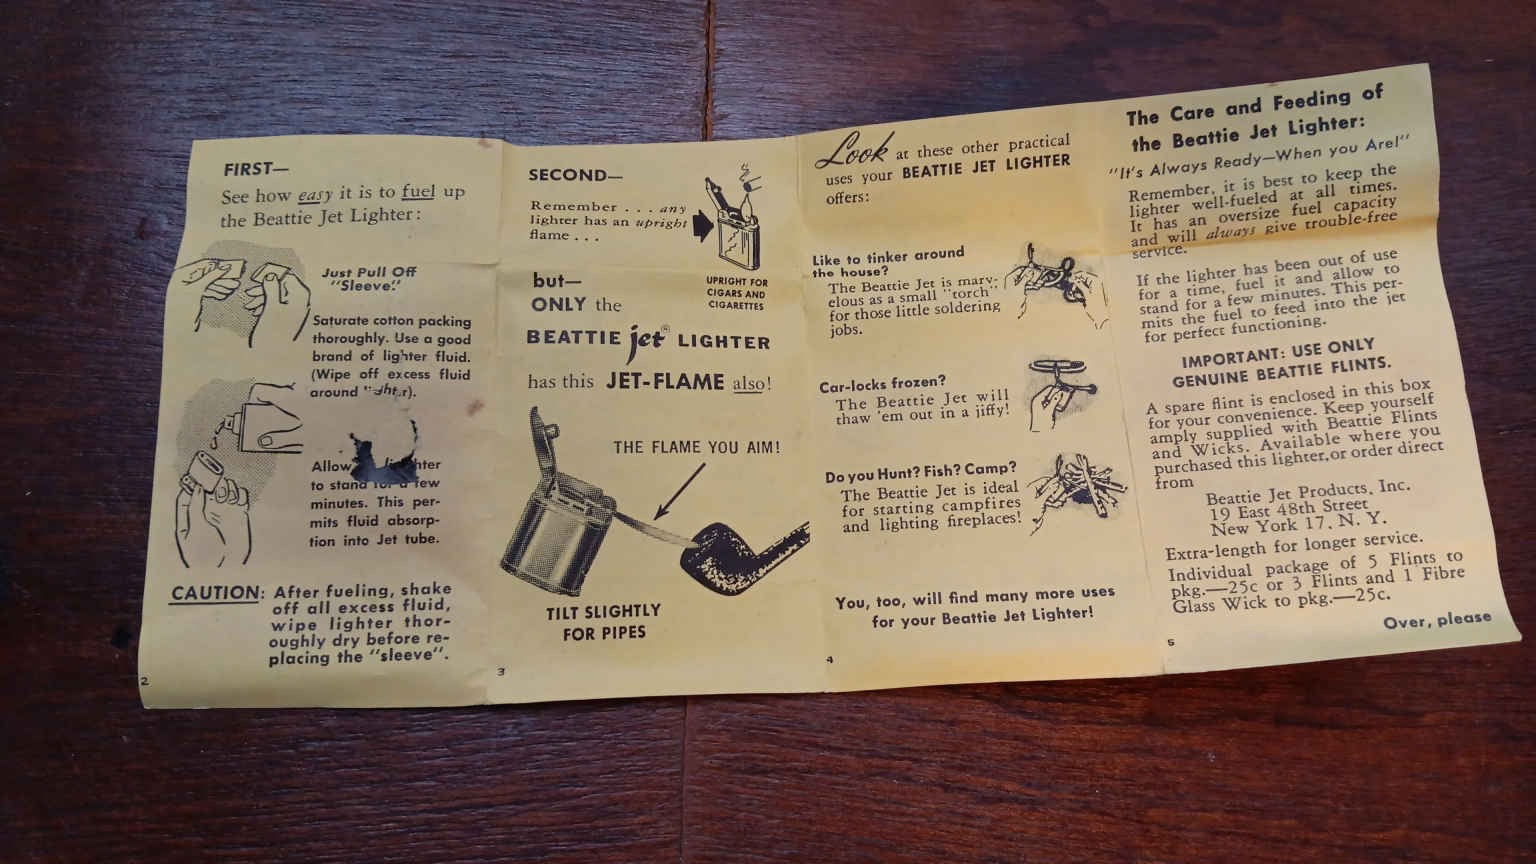 FIRST—
See how easy it is to fuel up
the Beattie Jet Lighter:
Just Pull Off
"Sleeve."
Saturate cotton packing
thoroughly. Use a good
brand of lighter fluid.
(Wipe off excess fluid
around
Allow
to stand for a few
minutes. This per-
mits fluid absorp-
tion into Jet tube.
CAUTION: After fueling, shake
off all excess fluid,
wipe lighter thor-
oughly dry before re-
placing the "sleeve".
2
SECOND—
Remember . . . any
lighter has an upright
flame . . .
UPRIGHT FOR
CIGARS AND
CIGARETTES
but—
ONLY the
BEATTIE jet® LIGHTER
has this JET-FLAME also!
THE FLAME YOU AIM!
TILT SLIGHTLY
FOR PIPES
3
Look at these other practical
uses your BEATTIE JET LIGHTER
offers:
Like to tinker around
the house?
The Beattie Jet is marv-
elous as a small "torch"
for those little soldering
jobs.
Car-locks frozen?
The Beattie Jet will
thaw 'em out in a jiffy!
Do you Hunt? Fish? Camp?
The Beattie Jet is ideal
for starting campfires
and lighting fireplaces!
You, too, will find many more uses
for your Beattie Jet Lighter!
4
The Care and Feeding of
the Beattie Jet Lighter:
"It's Always Ready—When you Are!"
Remember, it is best to keep the
lighter well-fueled at all times.
It has an oversize fuel capacity
and will always give trouble-free
service.
If the lighter has been out of use
for a time, fuel it and allow to
stand for a few minutes. This per-
mits the fuel to feed into the jet
for perfect functioning.
IMPORTANT: USE ONLY
GENUINE BEATTIE FLINTS.
A spare flint is enclosed in this box
for your convenience. Keep yourself
amply supplied with Beattie Flints
and Wicks. Available where you
purchased this lighter, or order direct
from
Beattie Jet Products, Inc.
19 East 48th Street
New York 17, N. Y.
Extra-length for longer service.
Individual package of 5 Flints to
pkg.—25c or 3 Flints and 1 Fibre
Glass Wick to pkg.—25c.
Over, please
5